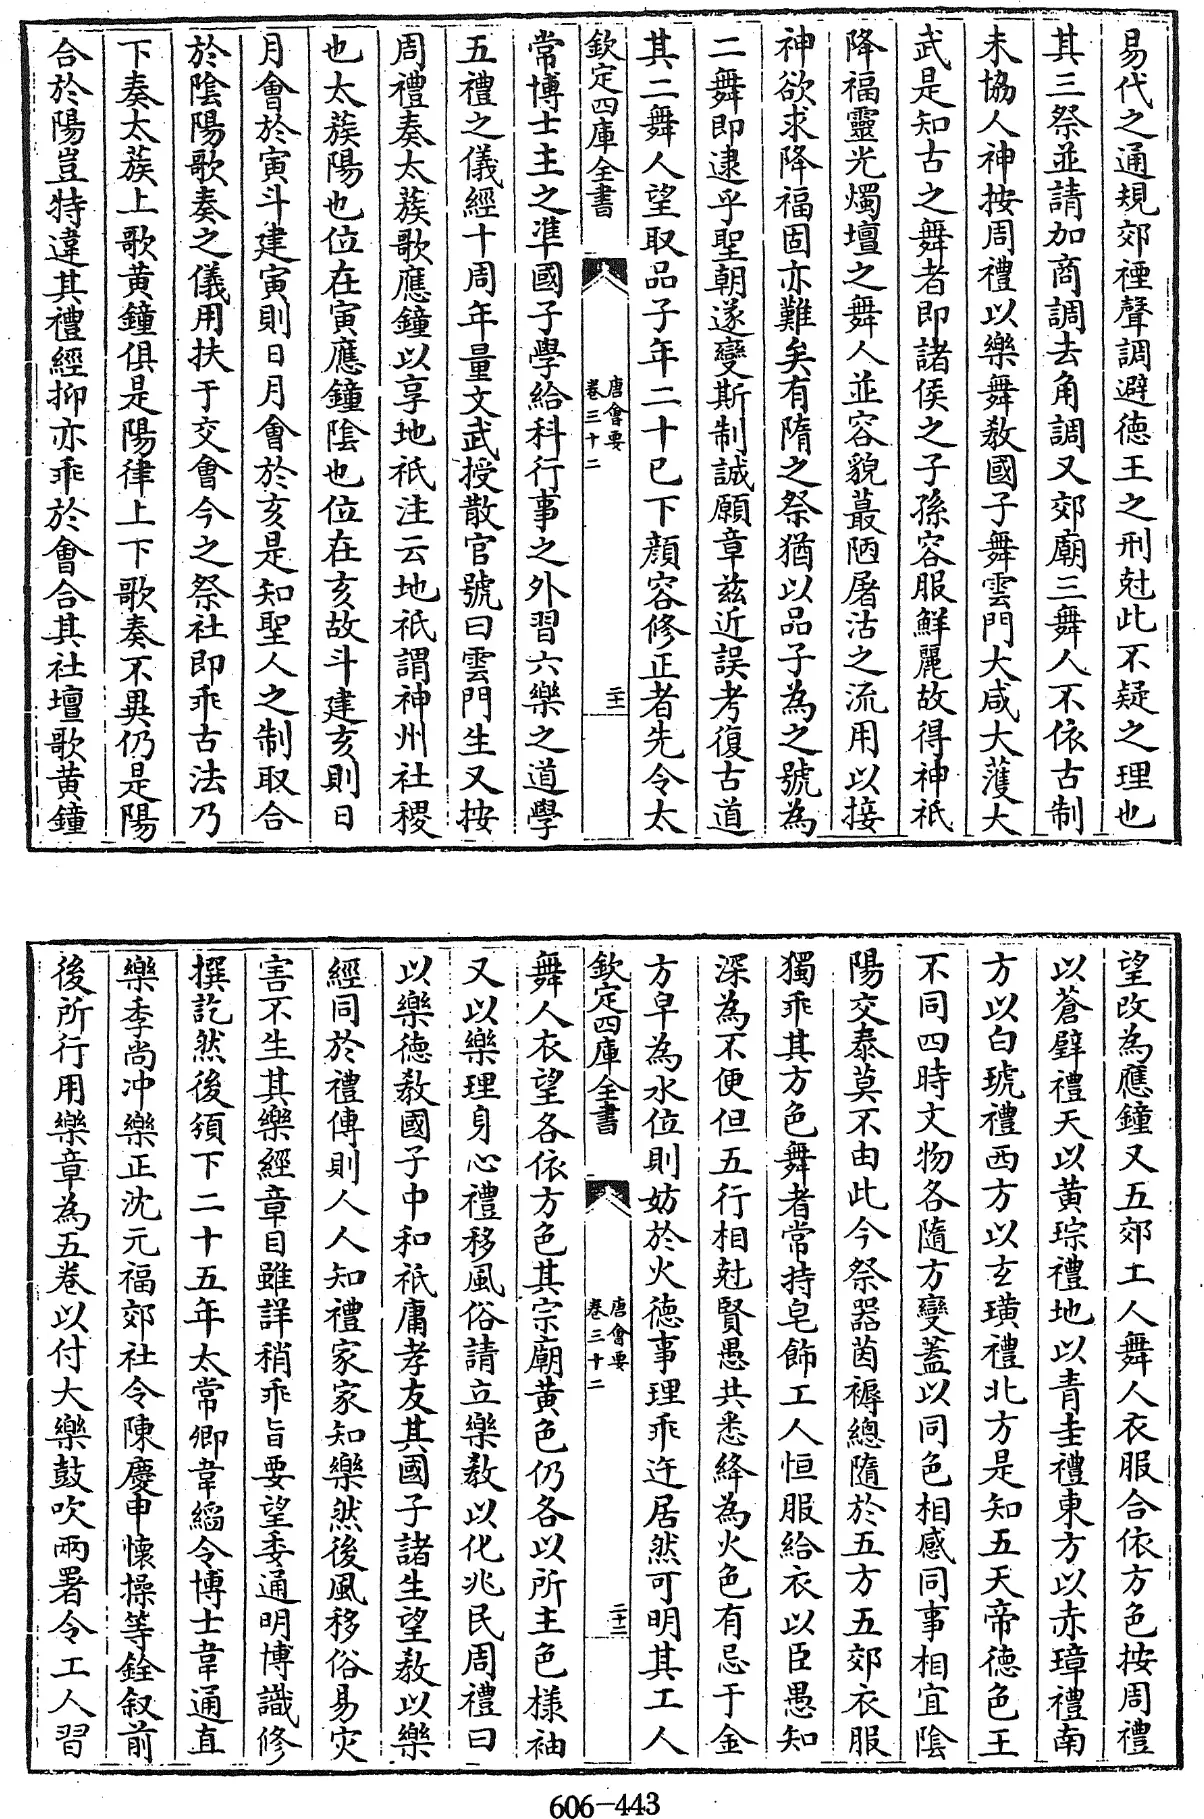 易代之通規郊禋聲調避德王之刑尅此不疑之理也
其三祭並請加商調去角調又郊廟三舞人不依古制
未協人神按周禮以樂舞教國子舞雲門大咸大濩大
武是知古之舞者即諸侯之子孫容服鮮麗故得神祇
降福靈光燭壇之舞人並容貌蕞陋屠沽之流用以接
神欲求降福固亦難矣有隋之祭猶以品子為之號為
二舞即逮乎聖朝遂變斯制誠願章兹近誤考復古道
其二舞人望取品子年二十已下顔容修正者先令太
欽定四庫全書
唐會要
卷三十二
二十一
常博士主之凖國子學給科行事之外習六樂之道學
五禮之儀經十周年量文武授散官號曰雲門生又按
周禮奏太蔟歌應鐘以享地祇注云地祇謂神州社稷
也太蔟陽也位在寅應鐘陰也位在亥故斗建亥則日
月會於寅斗建寅則日月會於亥是知聖人之制取合
於陰陽歌奏之儀用扶于交會今之祭社即乖古法乃
下奏太蔟上歌黄鐘俱是陽律上下歌奏不異仍是陽
合於陽豈特違其禮經抑亦乖於會合其社壇歌黄鐘
望改為應鐘又五郊工人舞人衣服合依方色按周禮
以蒼璧禮天以黄琮禮地以青圭禮東方以赤璋禮南
方以白琥禮西方以玄璜禮北方是知五天帝德色王
不同四時文物各隨方變蓋以同色相感同事相宜陰
陽交泰莫不由此今祭器茵褥總隨於五方五郊衣服
獨乖其方色舞者常持皂飾工人恒服給衣以臣愚知
深為不便但五行相尅賢愚共悉絳為火色有忌于金
方皁為水位則妨於火德事理乖迕居然可明其工人
欽定四庫全書
唐會要
卷三十二
二十二
舞人衣望各依方色其宗廟黄色仍各以所主色褾袖
又以樂理身心禮移風俗請立樂教以化兆民周禮曰
以樂德教國子中和祇庸孝友其國子諸生望教以樂
經同於禮傳則人人知禮家家知樂然後風移俗易灾
害不生其樂經章目雖詳稍乖旨要望委通明博識修
撰訖然後須下二十五年太常卿韋縚令博士韋逌直
樂季尚沖樂正沈元福郊社令陳虔申懷操等銓叙前
後所行用樂章為五卷以付大樂鼓吹兩署令工人習
606-443